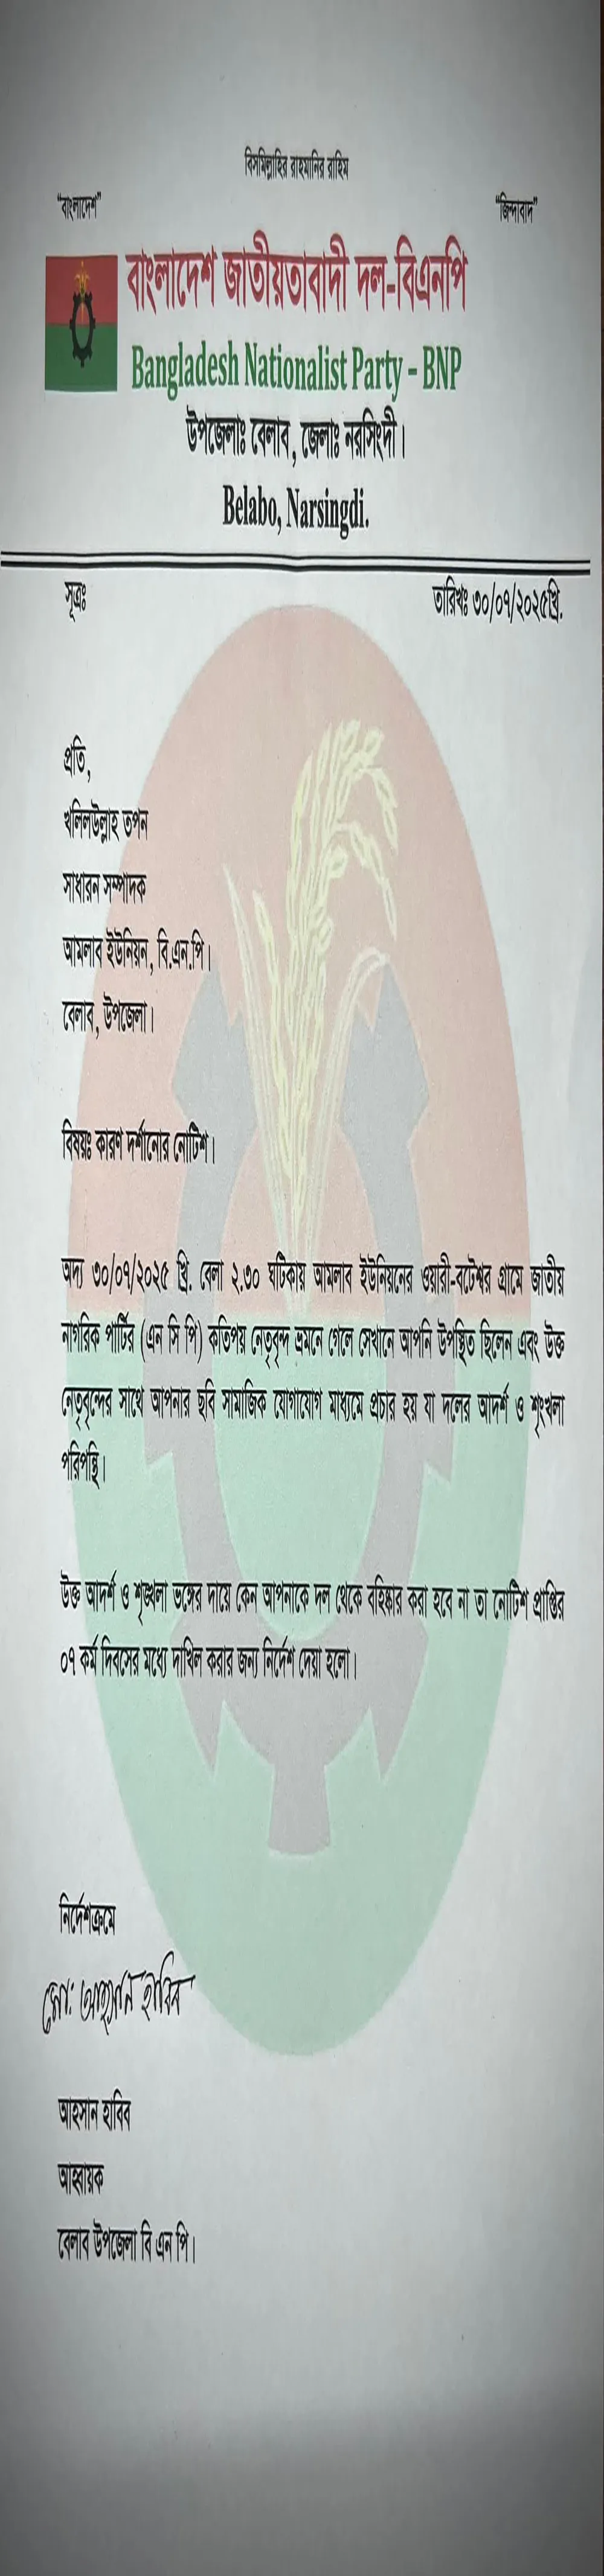 বিসমিল্লাহির রাহমানির রাহিম
“বাংলাদেশ” “জিন্দাবাদ”
বাংলাদেশ জাতীয়তাবাদী দল-বিএনপি
Bangladesh Nationalist Party – BNP
উপজেলাঃ বেলাব, জেলাঃ নরসিংদী।
Belabo, Narsingdi.
সূত্রঃ তারিখঃ ৩০/০৭/২০২৫খ্রি.
প্রতি,
খলিলউল্লাহ তপন
সাধারন সম্পাদক
আমলাব ইউনিয়ন, বি.এন.পি।
বেলাব, উপজেলা।
বিষয়ঃ কারণ দর্শানোর নোটিশ।
অদ্য ৩০/০৭/২০২৫ খ্রি. বেলা ২.৩০ ঘটিকায় আমলাব ইউনিয়নের ওয়ারী-বটেশ্বর গ্রামে জাতীয়
নাগরিক পার্টির (এন সি পি) কতিপয় নেতৃবৃন্দ ভ্রমনে গেলে সেখানে আপনি উপস্থিত ছিলেন এবং উক্ত
নেতৃবৃন্দের সাথে আপনার ছবি সামাজিক যোগাযোগ মাধ্যমে প্রচার হয় যা দলের আদর্শ ও শৃংখলা
পরিপন্থি।
উক্ত আদর্শ ও শৃঙ্খলা ভঙ্গের দায়ে কেন আপনাকে দল থেকে বহিষ্কার করা হবে না তা নোটিশ প্রাপ্তির
০৭ কর্ম দিবসের মধ্যে দাখিল করার জন্য নির্দেশ দেয়া হলো।
নির্দেশক্রমে
মো: আহসান হাবিব
আহসান হাবিব
আহ্বায়ক
বেলাব উপজেলা বি এন পি।